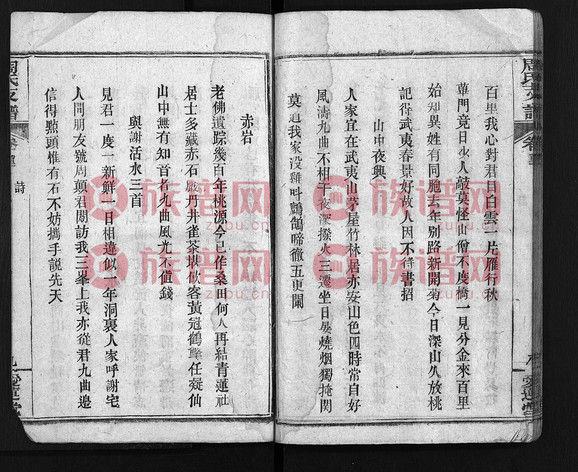 百里我心對君日白雲一片雁行秋
華門竟日少人敲莫怪山僧不度橋一見分金來百里
始知異姓有同胞去年別路新開菊今日深山久放桃
記得武夷春景好故人因不待書招
山中夜興
人家宜在武夷山茅屋竹林居亦安山色四時常自好
風濤九曲不相干夜深撥火三遷坐日晏燒烟獨掩關
莫道我家没雞呌鸕鶿啼徹五更闌
赤岩
老佛遺踪幾百年桃源今已作桑田何人再結青蓮社
居士多藏赤石丹井雀茶堪似客黃冠鶴任凝仙
山中無有知音者九曲風光不值錢
與謝活水三首
見君一度一新鮮一日相違似一年洞裏人家呼謝宅
人間朋友號周顛君閒訪我三峯上我亦從君九曲邊
信得點頭惟有石不妨攜手說先天
周氏支譜
詩
族譜网
zupu.cn